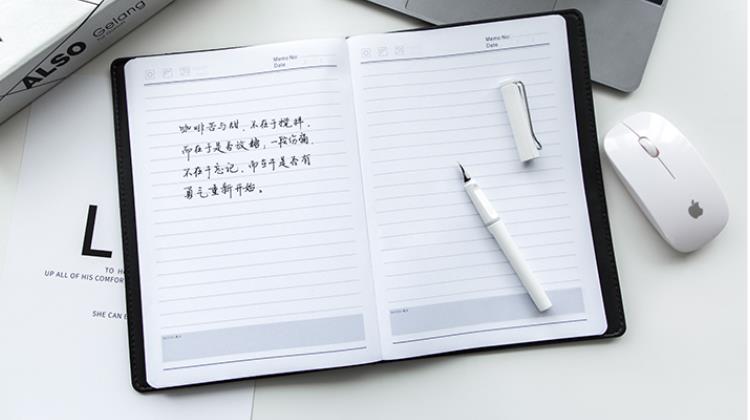 ALSO
Gelang
Memo No:
Date
Memo No:
Date
咖啡苦与甜,不在于搅拌,
而在于是否放糖,一段伤痛,
不在于忘记,而在于是否有
勇气重新开始。
L
TO H
UP ALL OF HIS COMFOR
SHE CAN B